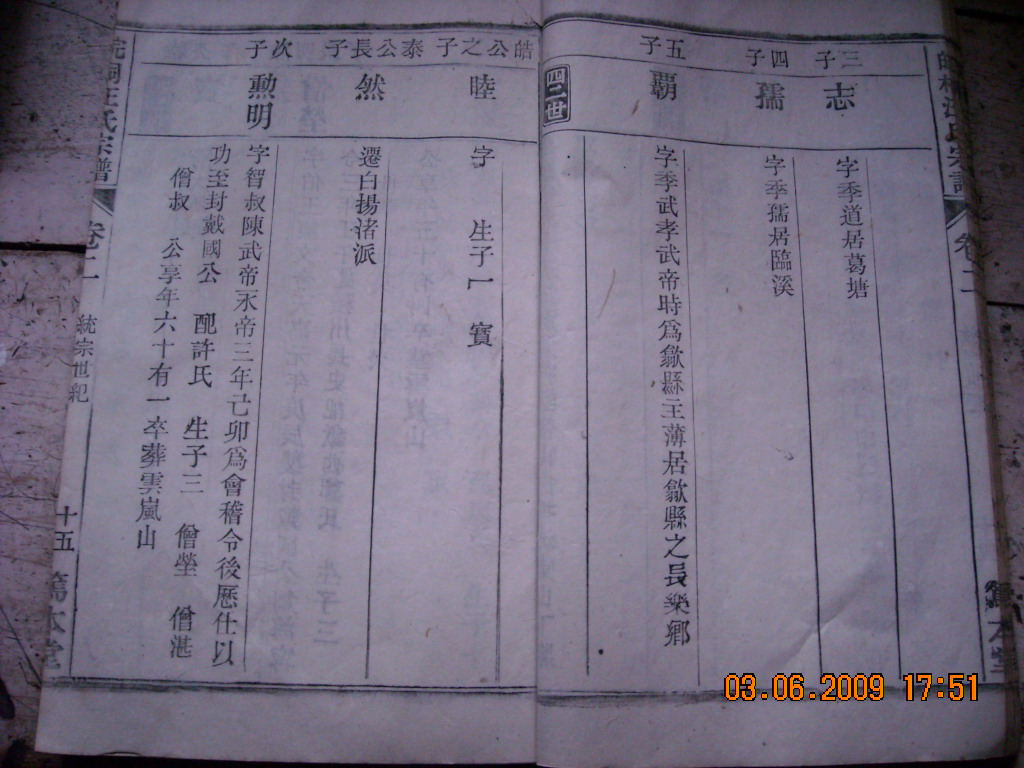 三子
志
字季道居葛塘
四子
孺
字季孺居臨溪
五子
覇
字季武孝武帝時爲歙縣王薄居歙縣之長樂鄉
四二世
皓公之子
睦
字 生子一 寳
泰公長子
然
遷白揚渚派
次子
勲明
字智叔陳武帝永帝三年己卯爲會稽令後歷仕以
功至封戴國公 配許氏 生子三 僧塋 僧湛
僧叔 公享年六十有一卒葬雲嵐山
汪氏宗譜
卷二
統宗世紀
十五
篤本堂
卷二
03.06.2009 17:51